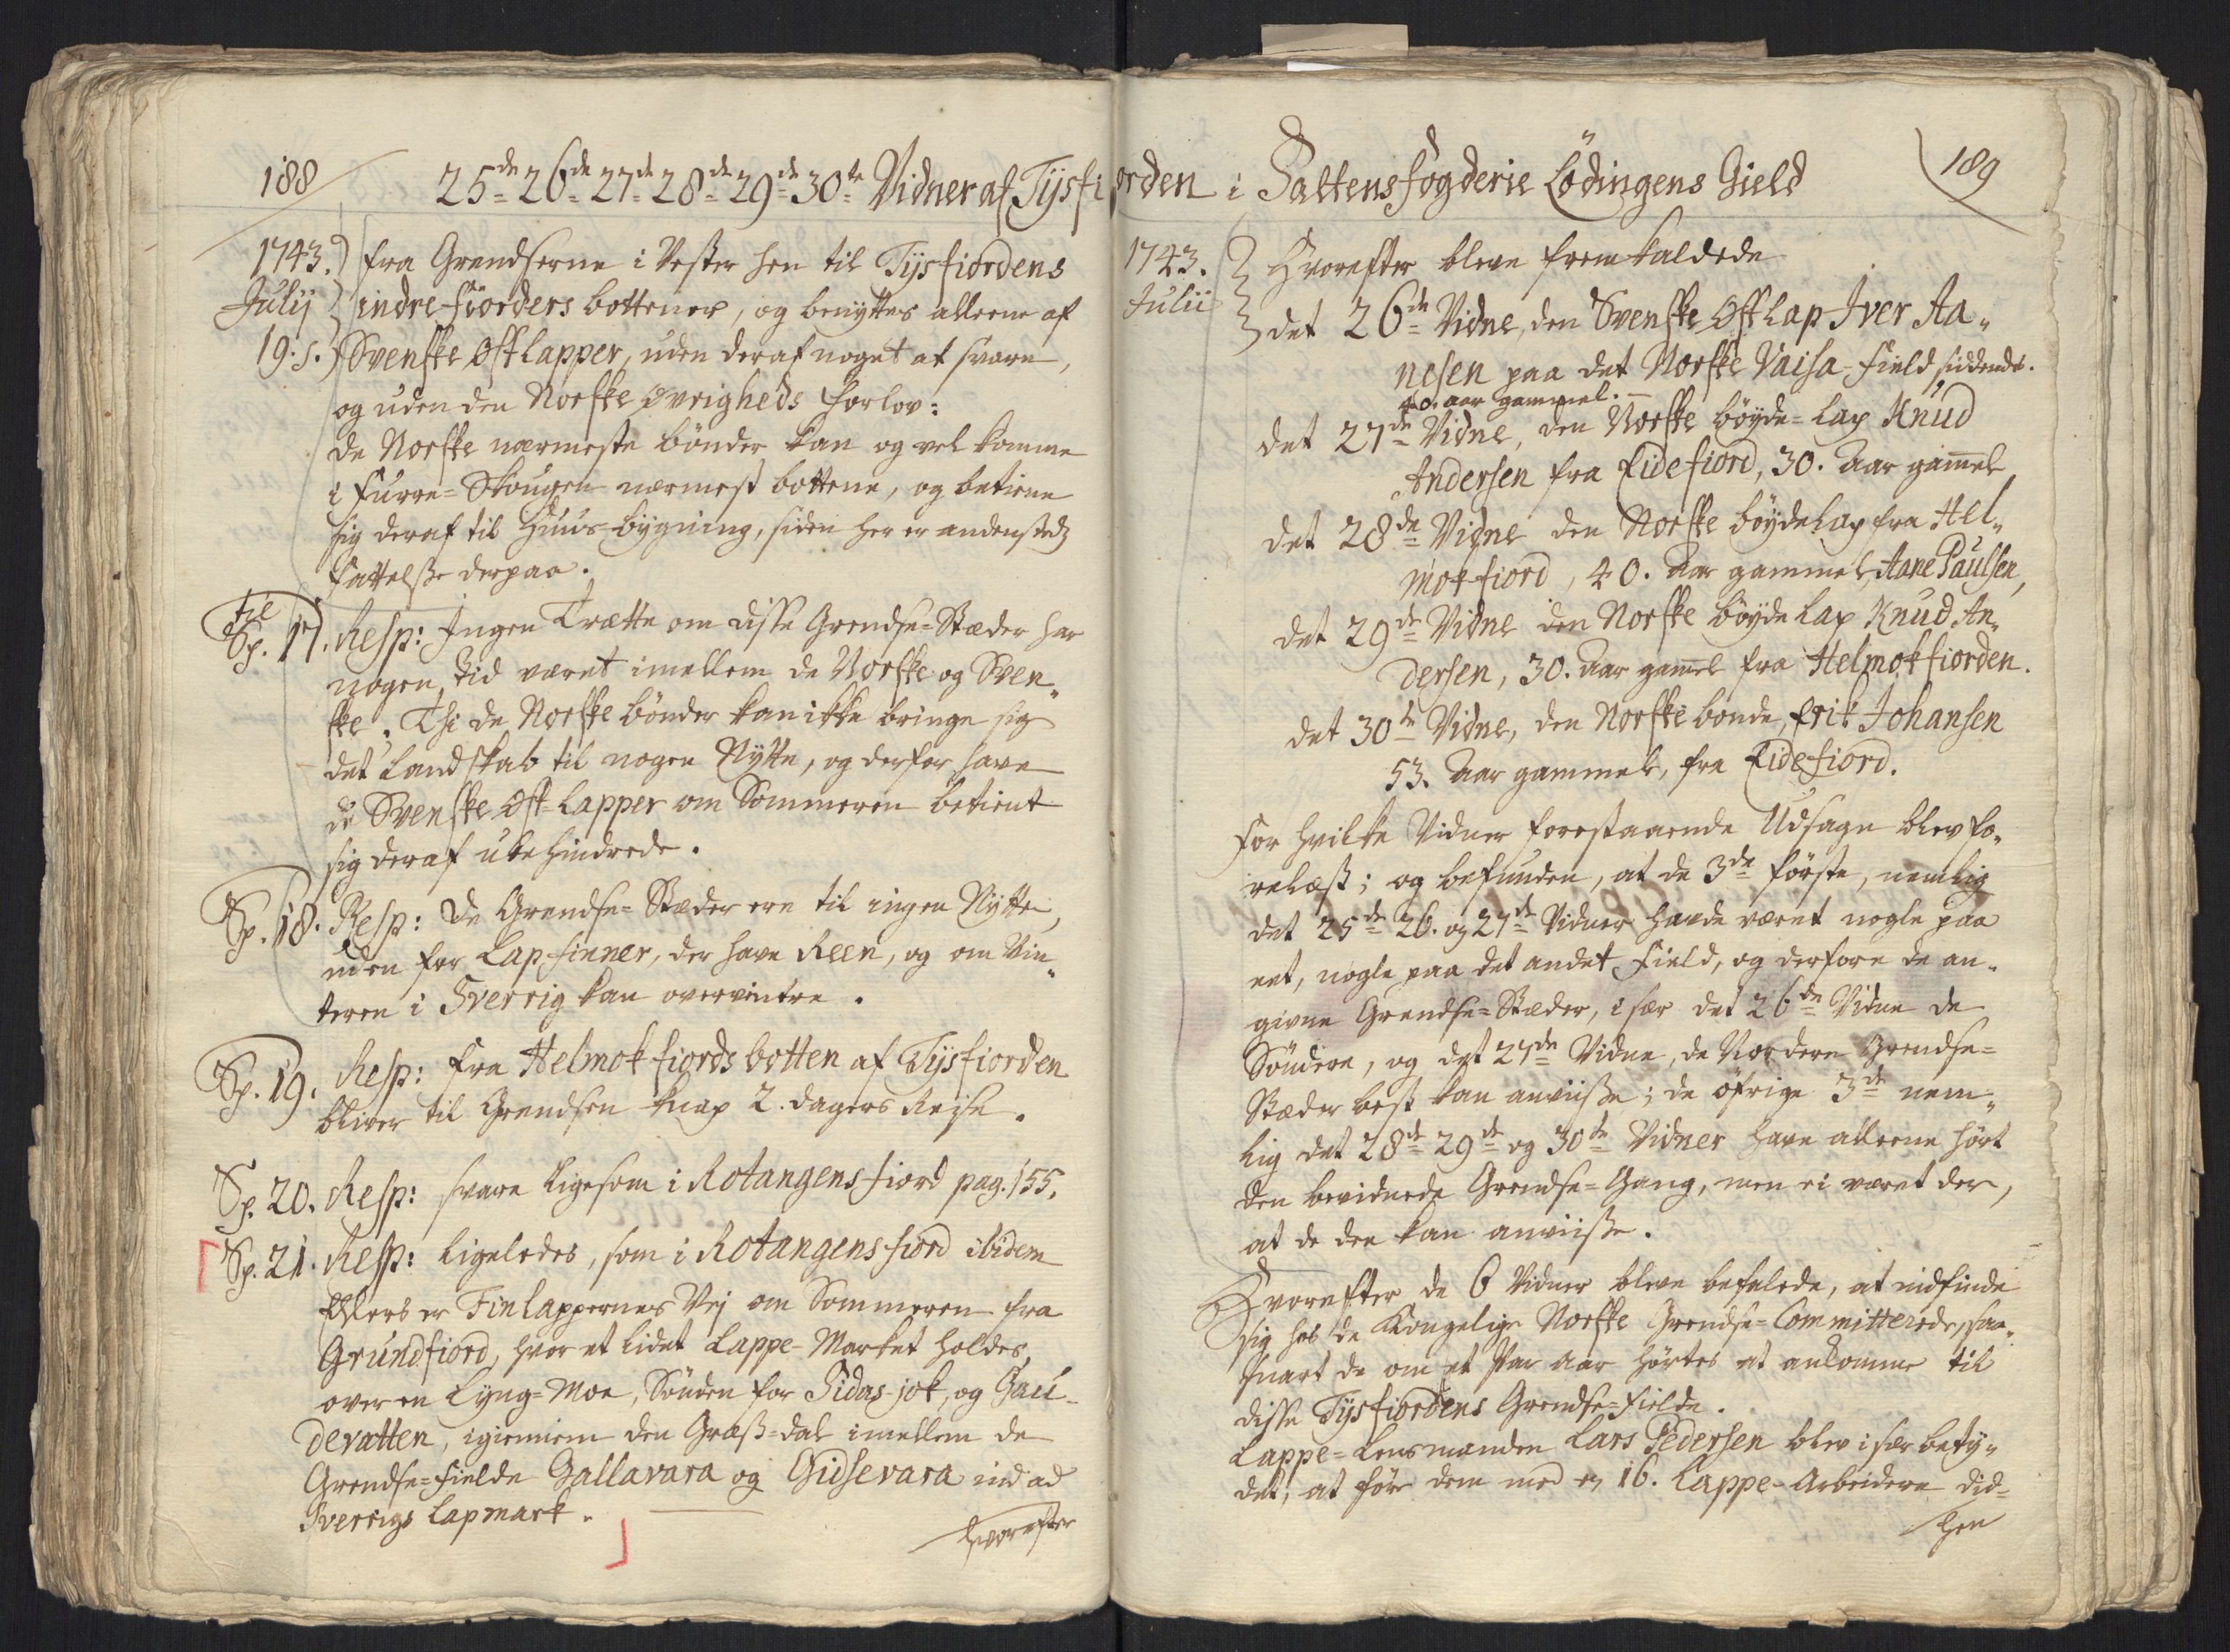 188
25de 26de 27de 28de 29de 30te Vidner af Tijsfi
1743. fra Grendserne i Vester hen til Tijsfiordens
Julij indre-fiorders bottener, og benyttes alleene af
19. s. Svenske Østlapper, uden deraf noget at svare,
og uden den Norske Øvrigheds forlov:
de Norske nærmeste bönder kan og vel komme
i Furre-Skougen nærmest bottene, og betiene
sig deraf til Huus-bygning, siden her er andensteds
fattelsse derpaa.
til
Sp. 17. Resp: Ingen Trætte om disse Grendse-Stæder har
nogen tid været imellem de Norske og Sven„
ske. Thi de Norske bönder kan ikke bringe sig
det Landskab til nogen Nytte, og derfor have
de Svenske Øst-Lapper om Sommeren betient
sig deraf ubehindrede.
Sp. 18. Resp: De Grendse-Stæder ere til ingen Nytte,
uden for Lap-finner, der have Reen, og om Vin„
teren i Sverrig kan overvintre.
Sp. 19. Resp: fra Helmokfiords botten af Tijsfiorden
bliver til Grendsen knap 2. dagers Reise.
Sp. 20. Resp: svare ligesom i Rotangensfiord pag. 155.
Sp. 21. Resp: ligeledes, som i Rotangensfiord ibidem
Ellers er Finlappernes Vej om Sommeren fra
Grundfiord, hvor et lidet Lappe-Market holdes,
over en Lyng-Moe, Sönden for Sidas-jok, og Gau-
devatten, igiennem den Græss-dal imellem de
Grendse-fielde Gallavara og Gidsevara ind ad
Sverrigs Lapmark.
Hvorefter
orden i Saltens fogderie Lödingens Gield
189
1743. Hvorefter bleve fremkaldede
Julii det 26de Vidne, den Svenske Østlap Iver Aa„
nesen paa det Norske Vaisa-Field siddende.
40. aar gammel.
det 27de Vidne, den Norske böyde-Lap Knud
Andersen fra Eidefiord, 30. Aar gammel
det 28de Vidne den Norske böydeLap fra Hel„
mokfiord, 40. Aar gammel, Aane Paulsen,
det 29de Vidne den Norske böyde Lap Knud An„
dersen, 30. Aar gammel fra Helmokfiorden.
det 30te Vidne, den Norske bonde, Erik Johansen
53. Aar gammel, fra Eidefiord.
For hvilke Vidner forestaaende Udsagn blev fo„
relæst; og befunden, at de 3de förste, nemlig
det 25de 26. og 27de Vidner havde været nogle paa
eet, nogle paa det andet Field, og derfore de an„
givne Grendse-Stæder, i sær det 26de Vidne de
Söndere, og det 27de Vidne, de Nordere Grendse-
Stæder best kan anviisse; de öfrige 3de nem„
lig det 28de 29de og 30te Vidner have alleene hört
den bevidnede Grendse-Gang, men ei været der,
at de den kan anviisse.
Hvorefter de 6 Vidner bleve befalede, at indfinde
sig hos de Kongelige Norske Grendse-Committerede, saa„
snart de om et Par Aar hörtes at ankomme til
disse Tijsfiordens Grendse-Fielde.
Lappe-Lensmanden Lars Pedersen blev i sær bety„
det, at före dem med og 16. Lappe-Arbeidere did-
hen